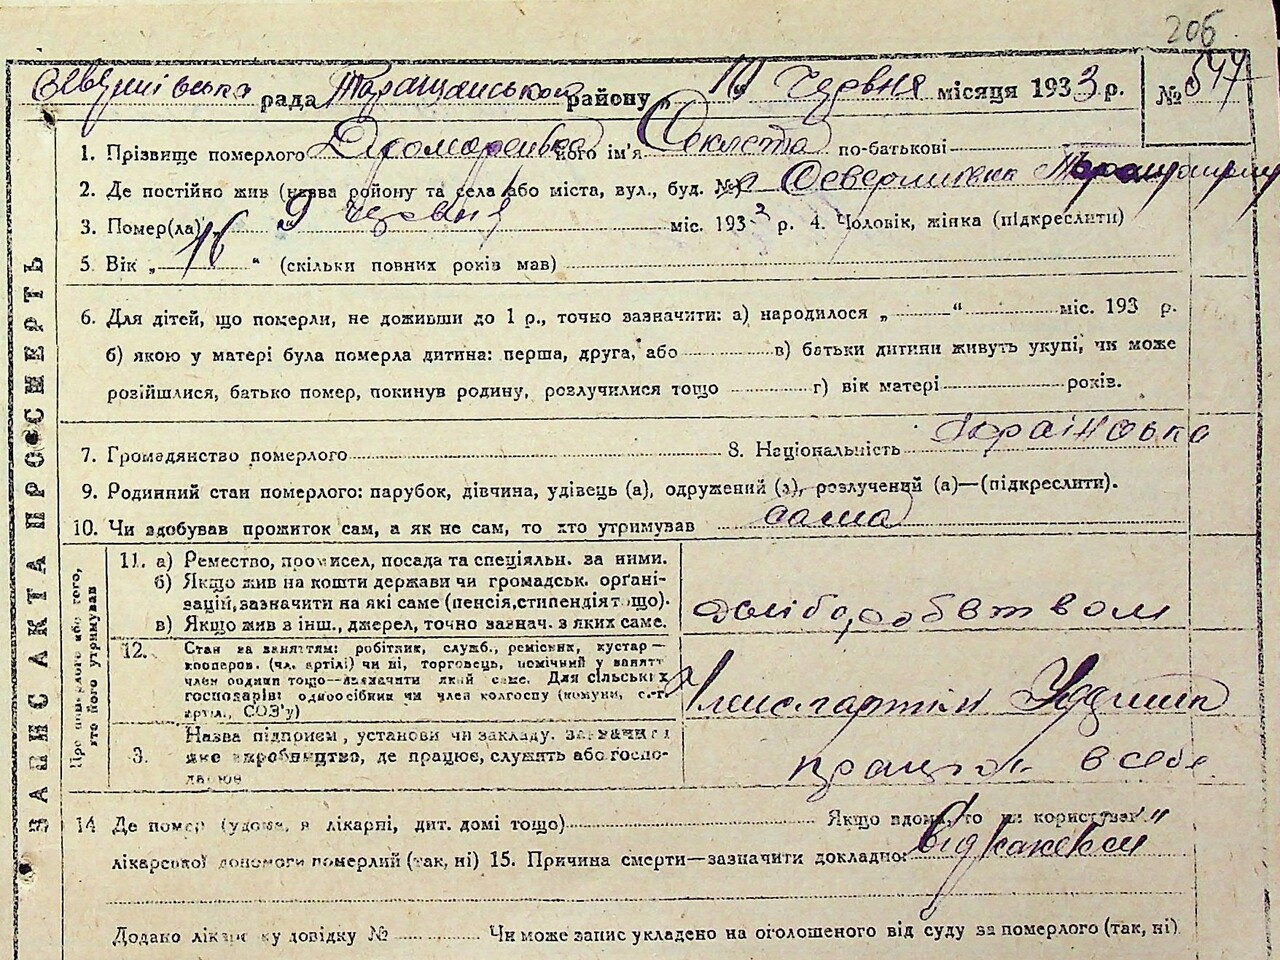 206
рада Таращанського району „ 10 " червня місяця 1933 р. № 544
1. Прізвище померлого його ім'я Секлета по-батькові
2. Де постійно жив (назва району та села або міста, вул., буд. №)
3. Помер(ла) „ 9 червня міс. 1933 р. 4. Чоловік, жінка (підкреслити)
5. Вік „ 16 " (скільки повних років мав)
6. Для дітей, що померли, не доживши до 1 р., точно зазначити: а) народилося „ " міс. 193 р.
б) якою у матері була померла дитина: перша, друга, або в) батьки дитини живуть укупі, чи може
розійшлися, батько помер, покинув родину, розлучилися тощо г) вік матері років.
7. Громадянство померлого 8. Національність Українська
9. Родинний стан померлого: парубок, дівчина, удівець (а), одружений (а), розлучений (а)—(підкреслити).
10. Чи здобував прожиток сам, а як не сам, то хто утримував сама
11. а) Ремество, промисел, посада та спеціяльн. за ними.
б) Якщо жив на кошти держави чи громадськ. органі-
зацій, зазначити на які саме (пенсія, стипендія тощо).
в) Якщо жив з інш., джерел, точно зазнач. з яких саме.
хліборобством
12. Стан за заняттям: робітник, служб., ремісник, кустар—
кооперов. (чл. артілі) чи ні, торговець, помічний у занятті
член родини тощо—зазначити який саме. Для сільських
господарів: одноосібник чи член колгоспу (комуни, с.-г.
артіл., СОЗ'у)
Член
3. Назва підприєм., установи чи закладу, зазначити
яке виробництво, де працює, служить або госпо-
дарює
в себе
14 Де помер (удома, в лікарні, дит. домі тощо) Якщо вдома, то чи користував
лікарської допомоги померлий (так, ні) 15. Причина смерти—зазначити докладно:
Додано лікарську довідку № Чи може запис укладено на оголошеного від суду за померлого (так, ні)
ЗАПИС АКТА ПРО СМЕРТЬ
Про померлого або того,
хто його утримував